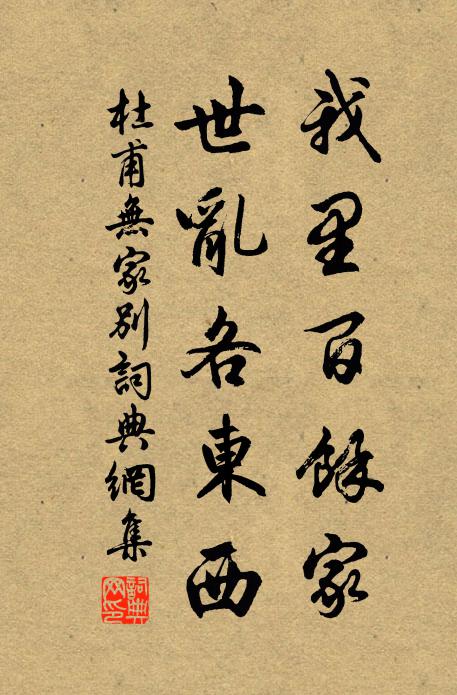 我里百餘家
世亂各東西
杜甫無家別詞典網集
詞典
网印